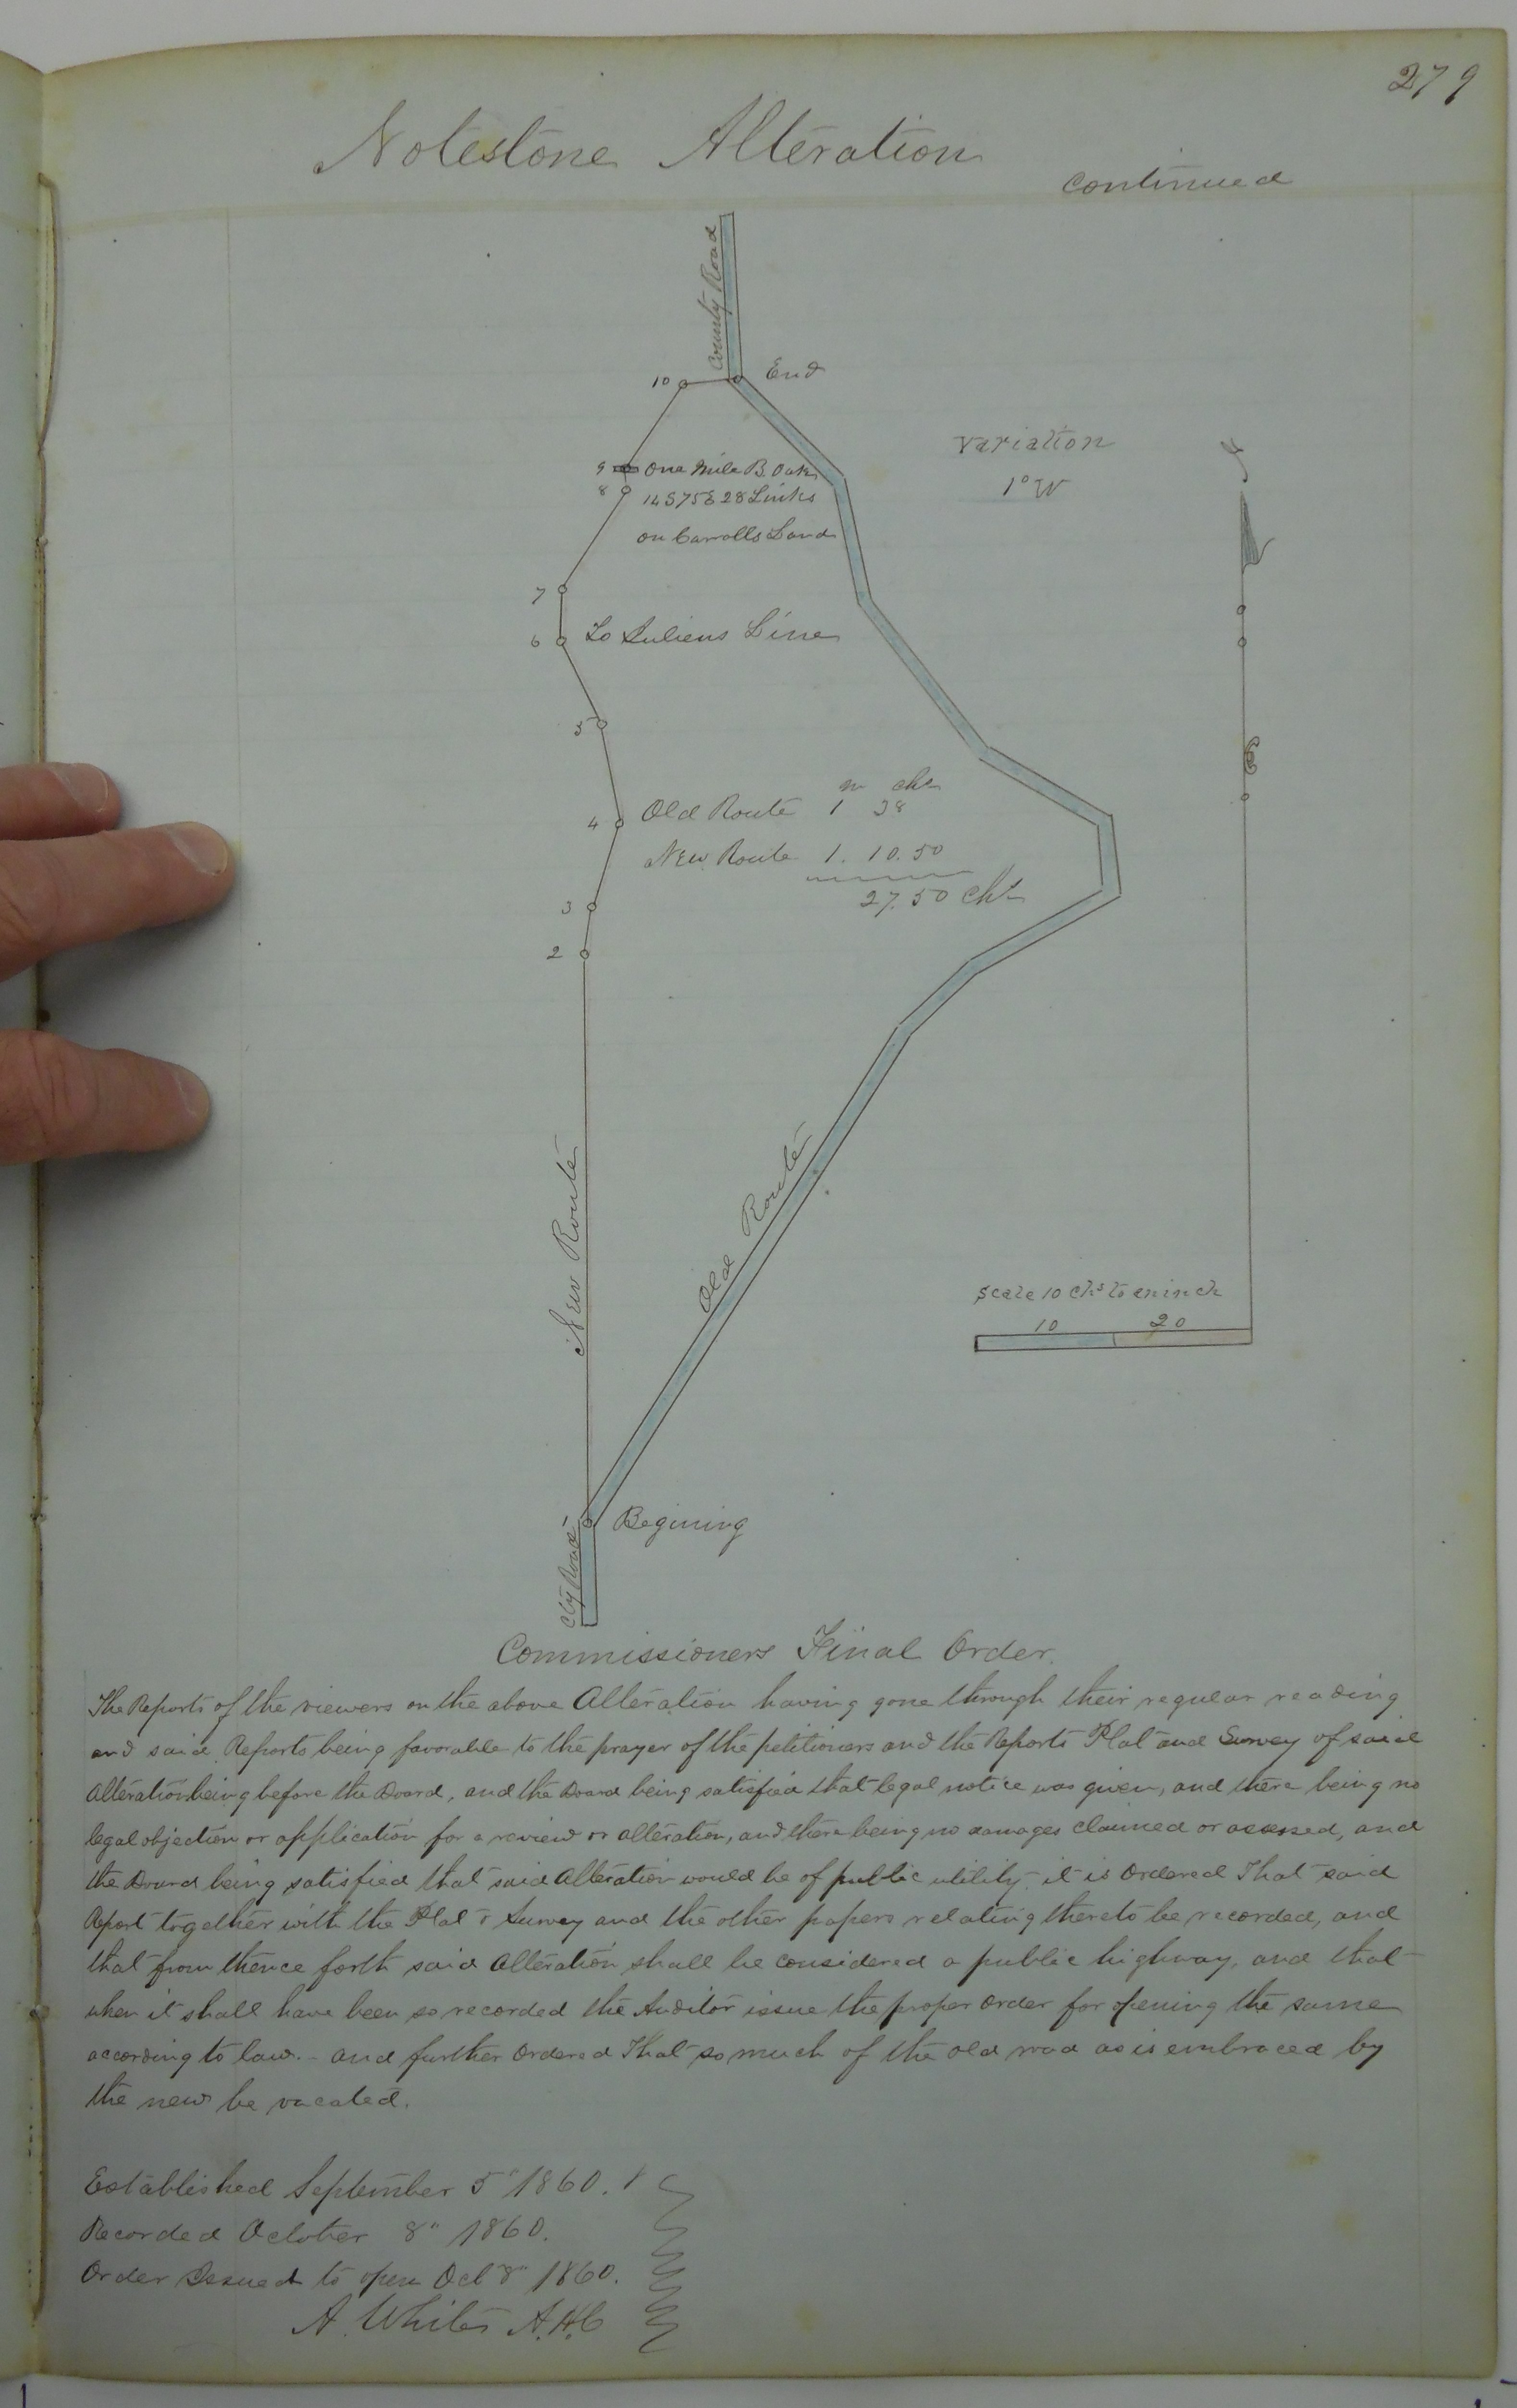 279
Notestone Alteration
continued
County Road
10
End
9 One Mile B. Oak
8 14 S75E 28 Links
on Carrolls Land
Variation
1° W
7
6 To Juliens Line
5
m chs
4 Old Route 1 38
New Route 1. 10.50
27.50 chs
3
2
New Route
Old Route
Scale 10 chs to an inch
10 20
1 Begining
Cty Road
Commissioners Final Order.
The Reports of the viewers on the above Alteration having gone through their regular reading
and said Reports being favorable to the prayer of the petitioners and the Reports Plat and Survey of said
Alteration being before the Board, and the Board being satisfied that legal notice was given, and there being no
legal objection or application for a review or alteration, and there being no damages claimed or assessed, and
the Board being satisfied that said Alteration would be of public utility it is Ordered That said
Report together with the Plat & Survey and the other papers relating thereto be recorded, and
that from thence forth said Alteration shall be considered a public highway, and that
when it shall have been so recorded the Auditor issue the proper Order for opening the same
according to law. - and further Ordered That so much of the old road as is embraced by
the new be vacated.
Established September 5" 1860.
Recorded October 8" 1860.
Order Issued to open Oct 8" 1860.
A. White A.H.C